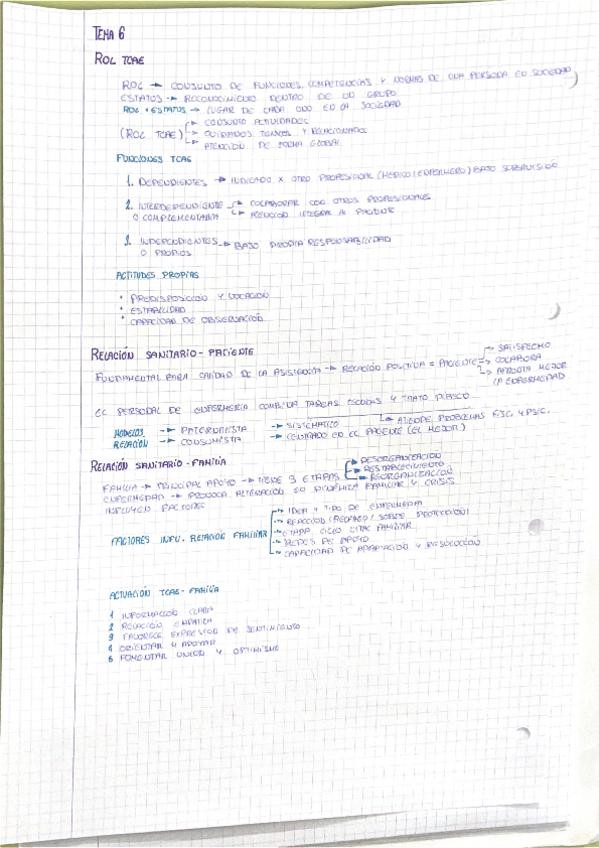 TEMA 6
ROL TCAE
ROL → CONJUNTO DE FUNCIONES, COMPETENCIAS Y NORMAS DE UNA PERSONA EN SOCIEDAD
ESTATUS → RECONOCIMIENTO DENTRO DE UN GRUPO
ROL + ESTATUS → LUGAR DE CADA UNO EN LA SOCIEDAD
→ CONJUNTO ACTIVIDADES
(ROL TCAE) → CUIDADOS TECNICOS Y RELACIONADOS
→ ATENCIÓN DE FORMA GLOBAL
FUNCIONES TCAE
1. DEPENDIENTES → INDICADO X OTRO PROFESIONAL (MEDICO/ENFERMERO) BAJO SUPERVISIÓN
2. INTERDEPENDIENTE → COLABORAR CON OTROS PROFESIONALES
O COMPLEMENTARIA → ATENCION INTEGRAL AL PACIENTE
3. INDEPENDIENTES → BAJO PROPIA RESPONSABILIDAD
O PROPIOS
ACTITUDES PROPIAS
• PREDISPOSICION Y VOCACION
• ESTABILIDAD
• CAPACIDAD DE OBSERVACIÓN
RELACIÓN SANITARIO - PACIENTE
→ SATISFECHO
FUNDAMENTAL PARA CALIDAD DE LA ASISTENCIA → RELACIÓN POSITIVA = PACIENTE → COLABORA
→ AFRONTA MEJOR
LA ENFERMEDAD
EL PERSONAL DE ENFERMERIA COMBINA TAREAS Y TRATO
→ ATIENDE PROBLEMAS FSC. Y PSIC.
MODELOS → PATERNALISTA → SISTEMATICO
RELACIÓN → CONSUMISTA → CENTRADO EN EL PACIENTE (EL MEJOR)
RELACIÓN SANITARIO - FAMILIA
→ DESORGANIZACION
FAMILIA → PRINCIPAL APOYO → TIENE 3 ETAPAS → RESTABLECIMIENTO
→ REORGANIZACIÓN
ENFERMEDAD → PROVOCA ALTERACION EN DINÁMICA FAMILIAR Y CRISIS
INFLUYEN FACTORES
→ IDEA Y TIPO DE ENFERMEDAD
→ REACCION (RECHAZO / SOBRE PROTECCION)
FACTORES INFLU. RELACION FAMILIAR → ETAPA CICLO VITAL FAMILIAR
→ REDES DE APOYO
→ CAPACIDAD DE ADAPTACION Y RESOLUCIÓN
ACTUACIÓN TCAE - FAMILIA
1 INFORMACION CLARA
2 RELACION EMPATICA
3 FAVORECE EXPRESION DE SENTIMIENTO
4 ORIENTAR Y APOYAR
5 FOMENTAR UNION Y OPTIMISMO